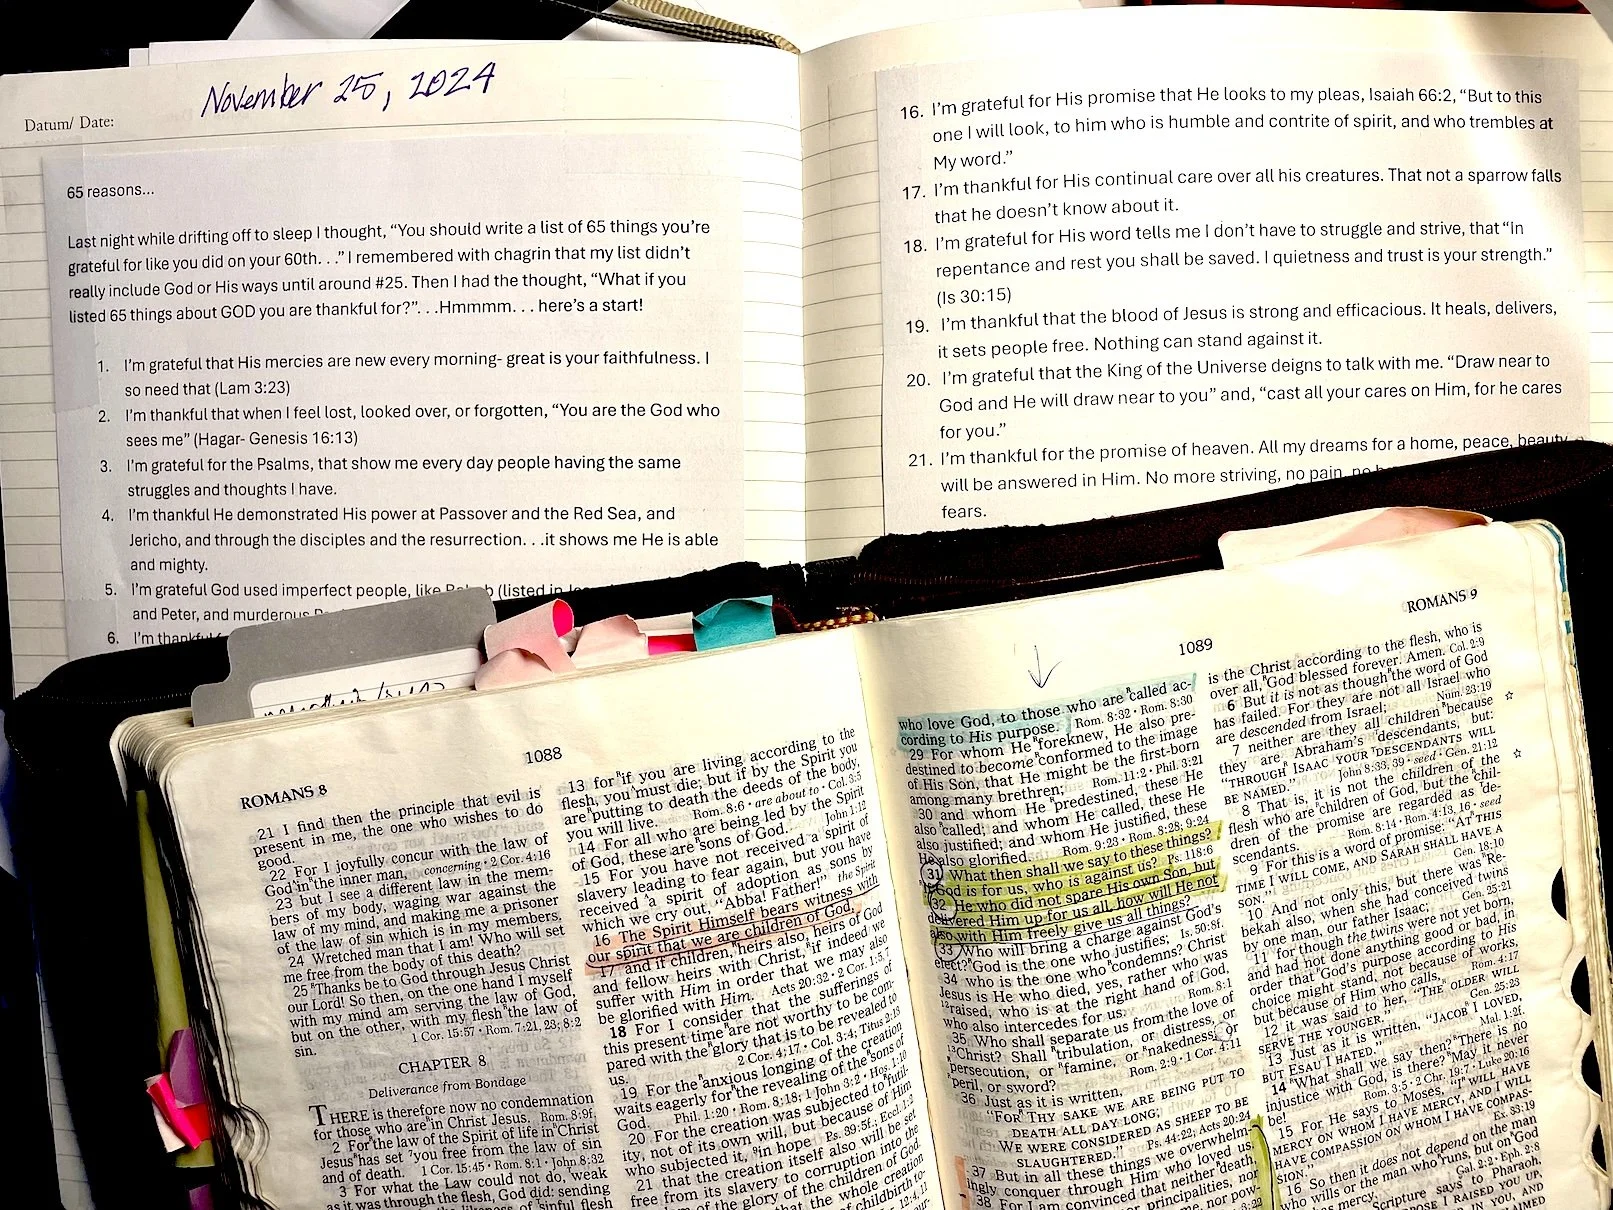 November 25, 2024
Datum/ Date:
65 reasons...
Last night while drifting off to sleep I thought, “You should write a list of 65 things you’re
grateful for like you did on your 60th. . .” I remembered with chagrin that my list didn’t
really include God or His ways until around #25. Then I had the thought, “What if you
listed 65 things about GOD you are thankful for?”. . .Hmmmm. . . here’s a start!
1. I’m grateful that His mercies are new every morning- great is your faithfulness. I
so need that (Lam 3:23)
2. I’m thankful that when I feel lost, looked over, or forgotten, “You are the God who
sees me” (Hagar- Genesis 16:13)
3. I’m grateful for the Psalms, that show me every day people having the same
struggles and thoughts I have.
4. I’m thankful He demonstrated His power at Passover and the Red Sea, and
Jericho, and through the disciples and the resurrection. . .it shows me He is able
and mighty.
5. I’m grateful God used imperfect people, like (listed in
and Peter, and murderous
6. I’m
16. I’m grateful for His promise that He looks to my pleas, Isaiah 66:2, “But to this
one I will look, to him who is humble and contrite of spirit, and who trembles at
My word.”
17. I’m thankful for His continual care over all his creatures. That not a sparrow falls
that he doesn’t know about it.
18. I’m grateful for His word tells me I don’t have to struggle and strive, that “In
repentance and rest you shall be saved. I quietness and trust is your strength.”
(Is 30:15)
19. I’m thankful that the blood of Jesus is strong and efficacious. It heals, delivers,
it sets people free. Nothing can stand against it.
20. I’m grateful that the King of the Universe deigns to talk with me. “Draw near to
God and He will draw near to you” and, “cast all your cares on Him, for he cares
for you.”
21. I’m thankful for the promise of heaven. All my dreams for a home, peace, beauty
will be answered in Him. No more striving, no pain, no
fears.
ROMANS 8
1088
21 I find then the principle that evil is
present in me, the one who wishes to do
good.
22 For I joyfully concur with the law of
God in the inner man, concerning • 2 Cor. 4:16
23 but I see a different law in the mem-
bers of my body, waging war against the
law of my mind, and making me a prisoner
of the law of sin which is in my members.
24 Wretched man that I am! Who will set
me free from the body of this death?
25 Thanks be to God through Jesus Christ
our Lord! So then, on the one hand I myself
with my mind am serving the law of God,
but on the other, with my flesh the law of
sin. 1 Cor. 15:57 • Rom. 7:21, 23; 8:2
CHAPTER 8
Deliverance from Bondage
THERE is therefore now no condemnation
for those who are in Christ Jesus. Rom. 8:9f.
2 For the law of the Spirit of life in Christ
Jesus has set you free from the law of sin
and of death. 1 Cor. 15:45 • Rom. 8:1 • John 8:32
3 For what the Law could not do, weak
as it was through the flesh, God did: sending
likeness of sinful flesh
13 for if you are living according to the
flesh, you must die; but if by the Spirit you
are putting to death the deeds of the body,
you will live. Rom. 8:6 • are about to • Col. 3:5
14 For all who are being led by the Spirit
of God, these are sons of God. John 1:12
15 For you have not received a spirit of
slavery leading to fear again, but you have
received a spirit of adoption as sons by
which we cry out, “Abba! Father!” the Spirit
16 The Spirit Himself bears witness with
our spirit that we are children of God,
17 and if children, heirs also, heirs of God
and fellow heirs with Christ, if indeed we
suffer with Him in order that we may also
be glorified with Him. Acts 20:32 • 2 Cor. 1:5,7
18 For I consider that the sufferings of
this present time are not worthy to be com-
pared with the glory that is to be revealed to
us. 2 Cor. 4:17 • Col. 3:4; Titus 2:13
19 For the anxious longing of the creation
waits eagerly for the revealing of the sons of
God. Phil. 1:20 • Rom. 8:18; 1 John 3:2 • Hos. 1:10
20 For the creation was subjected to futil-
ity, not of its own will, but because of Him
who subjected it, in hope Ps. 39:5f.; Eccl. 1:2
21 that the creation itself also will be set
free from its slavery to corruption into the
freedom of the glory of the children of God.
that the whole creation
childbirth
1089
ROMANS 9
who love God, to those who are called ac-
cording to His purpose. Rom. 8:32 • Rom. 8:30
29 For whom He foreknew, He also pre-
destined to become conformed to the image
of His Son, that He might be the first-born
among many brethren; Rom. 11:2 • Phil. 3:21
30 and whom He predestined, these He
also called; and whom He called, these He
also justified; and whom He justified, these
He also glorified. Rom. 9:23 • Rom. 8:28; 9:24
31 What then shall we say to these things?
If God is for us, who is against us? Ps. 118:6
32 He who did not spare His own Son, but
delivered Him up for us all, how will He not
also with Him freely give us all things?
33 Who will bring a charge against God’s
elect? God is the one who justifies; Is. 50:8f.
34 who is the one who condemns? Christ
Jesus is He who died, yes, rather who was
raised, who is at the right hand of God,
who also intercedes for us. Rom. 8:1
35 Who shall separate us from the love of
Christ? Shall tribulation, or distress, or
persecution, or famine, or nakedness, or
peril, or sword? Rom. 2:9 • 1 Cor. 4:11
36 Just as it is written,
“FOR THY SAKE WE ARE BEING PUT TO
DEATH ALL DAY LONG;
WE WERE CONSIDERED AS SHEEP TO BE
SLAUGHTERED.” Ps. 44:22; Acts 20:24
37 But in all these things we overwhelm-
ingly conquer through Him who loved us.
38 For I am convinced that neither death,
principalities, nor
nor pow-
is the Christ according to the flesh, who is
over all, God blessed forever. Amen. Col. 2:9
6 But it is not as though the word of God
has failed. For they are not all Israel who
are descended from Israel; Num. 23:19
7 neither are they all children because
they are Abraham’s descendants, but:
“THROUGH ISAAC YOUR DESCENDANTS WILL
BE NAMED.” John 8:33, 39 • seed • Gen. 21:12
8 That is, it is not the children of the
flesh who are children of God, but the chil-
dren of the promise are regarded as de-
scendants. Rom. 8:14 • Rom. 4:13, 16 • seed
9 For this is a word of promise: “AT THIS
TIME I WILL COME, AND SARAH SHALL HAVE A
SON.” Gen. 18:10
10 And not only this, but there was Re-
bekah also, when she had conceived twins
by one man, our father Isaac; Gen. 25:21
11 for though the twins were not yet born,
and had not done anything good or bad, in
order that God’s purpose according to His
choice might stand, not because of works,
but because of Him who calls, Rom. 4:17
12 it was said to her, “THE OLDER WILL
SERVE THE YOUNGER.” Gen. 25:23
13 Just as it is written, “JACOB I LOVED,
BUT ESAU I HATED.” Mal. 1:2f.
14 What shall we say then? There is no
injustice with God, is there? May it never
be! Rom. 3:5 • 2 Chr. 19:7 • Luke 20:16
15 For He says to Moses, “I WILL HAVE
MERCY ON WHOM I HAVE MERCY, AND I WILL
HAVE COMPASSION ON WHOM I HAVE COMPAS-
SION.” Ex. 33:19
16 So then it does not depend on the man
who wills or the man who runs, but on God
has mercy. Gal. 2:2 • Eph. 2:8
Scripture says to Pharaoh,
I RAISED YOU UP,
IN YOU, AND